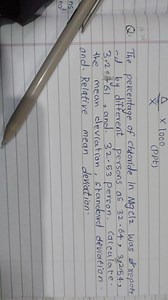 Δ/x̄ × 1000 (ppt)
Q. The percentage of chloride in MgCl2 was repor
-ed by different persons as 32.64, 32.54,
32.61, and 32.53 person. calculate
the mean deviation, standard deviation
and Relative mean deviation.